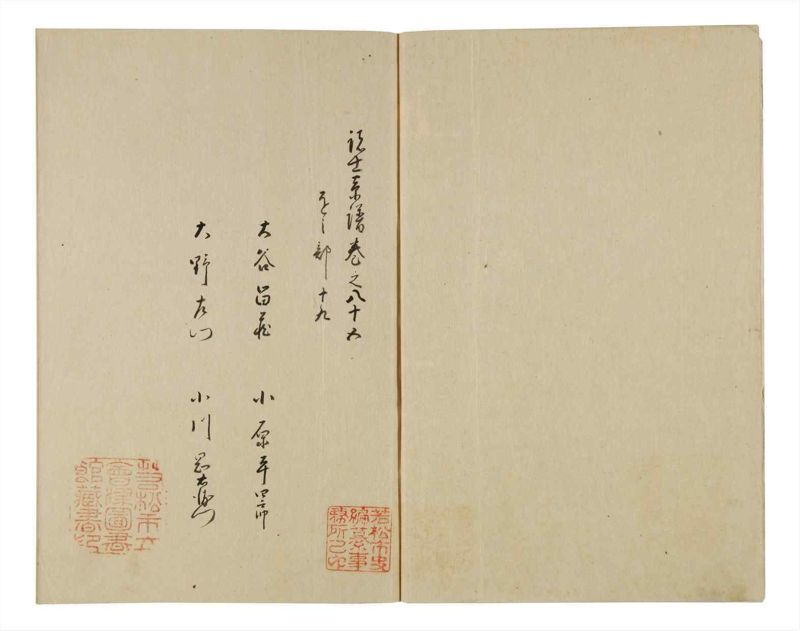 諸士系譜巻之八十五
をノ部 十九
大谷留蔵 小原平四郎
大野左門 小川衛
若松市史
編纂事
務所之印
若松市立
會津圖書
館藏書印